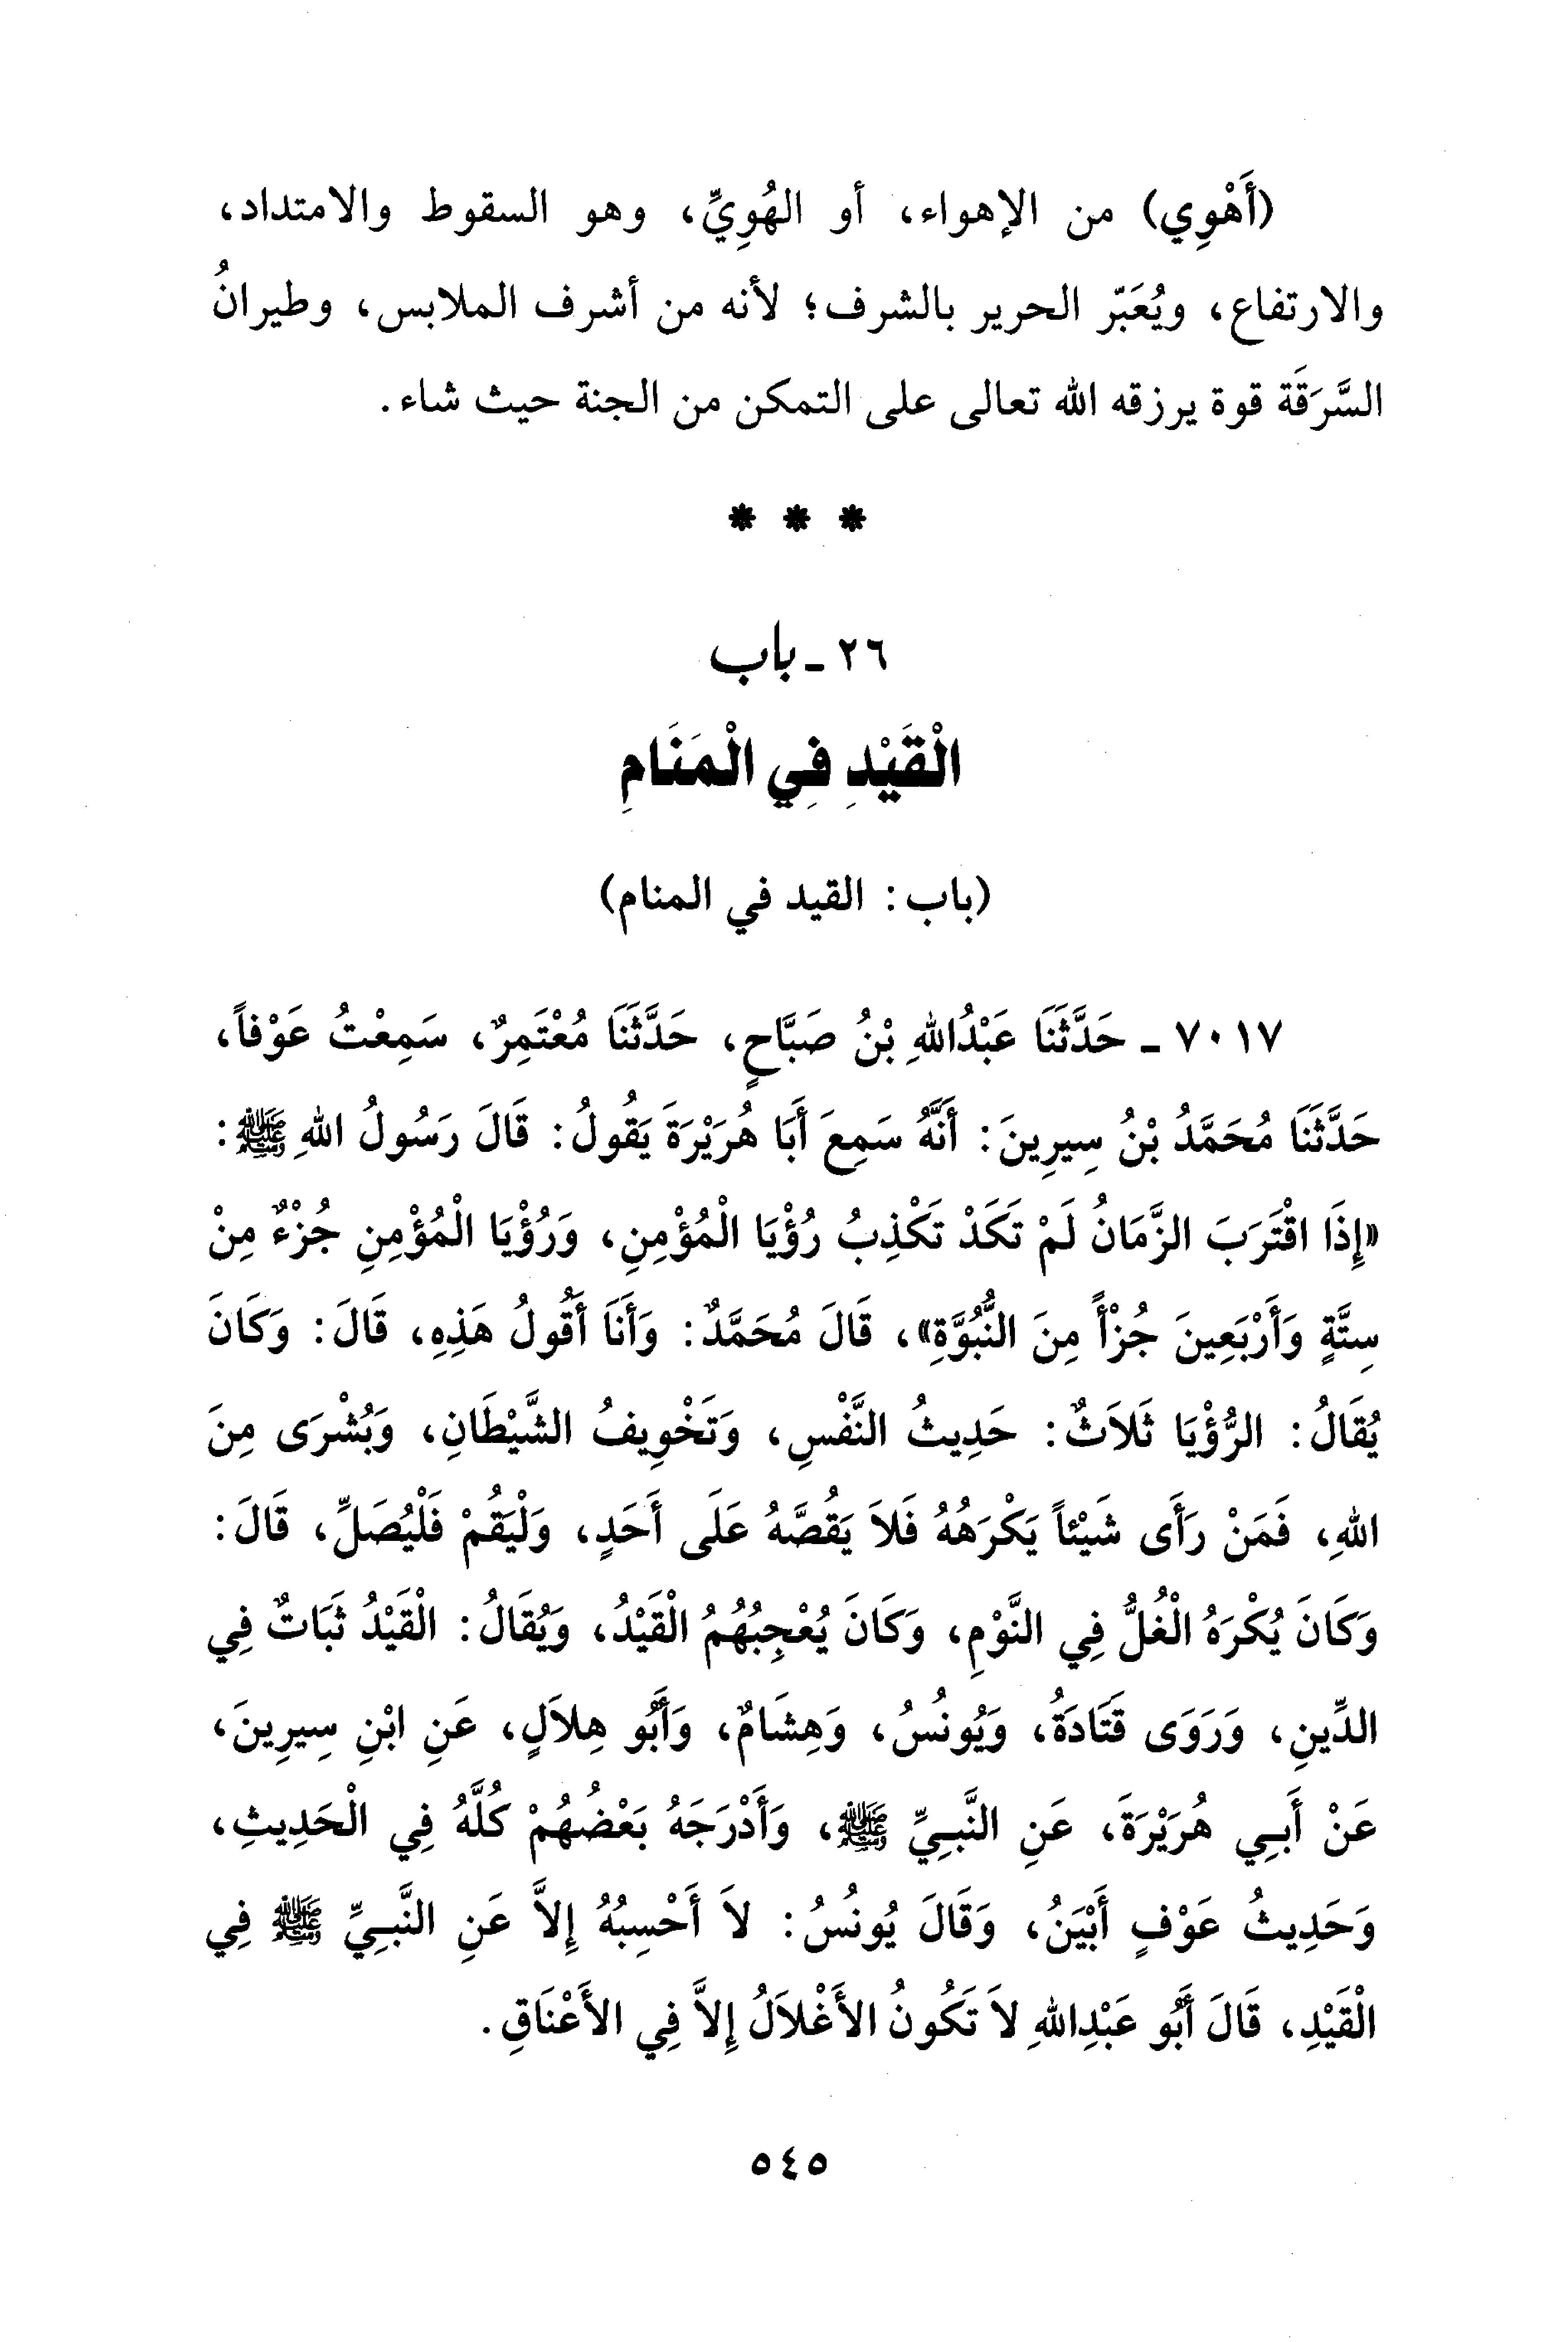 (أَهْوِي) من الإهواء، أو الهُوِيِّ، وهو السقوط والامتداد،
والارتفاع، ويُعَبّر الحرير بالشرف؛ لأنه من أشرف الملابس، وطيرانُ
السَّرَقَة قوة يرزقه الله تعالى على التمكن من الجنة حيث شاء.
* * *
٢٦ ـ باب
الْقَيْدِ فِي الْمَنَامِ
(باب: القيد في المنام)
٧٠١٧ ـ حَدَّثَنَا عَبْدُاللهِ بْنُ صَبَّاحٍ، حَدَّثَنَا مُعْتَمِرٌ، سَمِعْتُ عَوْفاً،
حَدَّثَنَا مُحَمَّدُ بْنُ سِيرِينَ: أَنَّهُ سَمِعَ أَبَا هُرَيْرَةَ يَقُولُ: قَالَ رَسُولُ اللهِ ﷺ:
«إِذَا اقْتَرَبَ الزَّمَانُ لَمْ تَكَدْ تَكْذِبُ رُؤْيَا الْمُؤْمِنِ، وَرُؤْيَا الْمُؤْمِنِ جُزْءٌ مِنْ
سِتَّةٍ وَأَرْبَعِينَ جُزْأً مِنَ النُّبُوَّةِ»، قَالَ مُحَمَّدٌ: وَأَنَا أَقُولُ هَذِهِ، قَالَ: وَكَانَ
يُقَالُ: الرُّؤْيَا ثَلاَثٌ: حَدِيثُ النَّفْسِ، وَتَخْوِيفُ الشَّيْطَانِ، وَبُشْرَى مِنَ
اللهِ، فَمَنْ رَأَى شَيْئاً يَكْرَهُهُ فَلاَ يَقُصَّهُ عَلَى أَحَدٍ، وَلْيَقُمْ فَلْيُصَلِّ، قَالَ:
وَكَانَ يُكْرَهُ الْغُلُّ فِي النَّوْمِ، وَكَانَ يُعْجِبُهُمُ الْقَيْدُ، وَيُقَالُ: الْقَيْدُ ثَبَاتٌ فِي
الدِّينِ، وَرَوَى قَتَادَةُ، وَيُونُسُ، وَهِشَامٌ، وَأَبُو هِلاَلٍ، عَنِ ابْنِ سِيرِينَ،
عَنْ أَبِي هُرَيْرَةَ، عَنِ النَّبِيِّ ﷺ، وَأَدْرَجَهُ بَعْضُهُمْ كُلَّهُ فِي الْحَدِيثِ،
وَحَدِيثُ عَوْفٍ أَبْيَنُ، وَقَالَ يُونُسُ: لاَ أَحْسِبُهُ إِلاَّ عَنِ النَّبِيِّ ﷺ فِي
الْقَيْدِ، قَالَ أَبُو عَبْدِاللهِ لاَ تَكُونُ الأَغْلاَلُ إِلاَّ فِي الأَعْنَاقِ.
٥٤٥